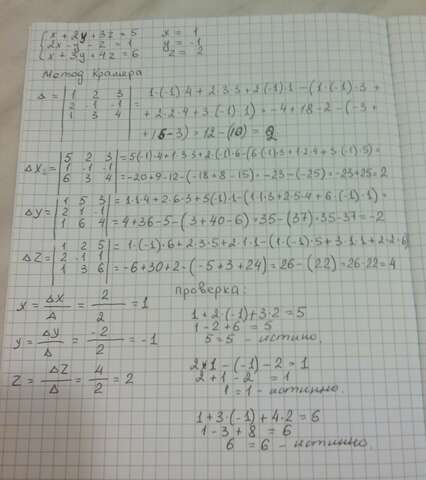 x + 2y + 3z = 5    x = 1
2x - y - z = 1    y = -1
x + 3y + 4z = 6    z = 2
Метод Крамера
Δ = | 1 2 3 | = 1·(-1)·4 + 2·3·3 + 2·(-1)·1 - (1·(-1)·3 +
| 2 -1 -1 | + 2·2·4 + 3·(-1)·1) = -4 + 18 - 2 - (-3 +
| 1 3 4 | + 16 - 3) = 12 - (10) = 2
ΔX = | 5 2 3 | = 5(-1)·4 + 1·3·3 + 2·(-1)·6 - (6·(-1)·3 + 1·2·4 + 3·(-1)·5) =
| 1 -1 -1 |
| 6 3 4 | = -20 + 9 - 12 - (-18 + 8 - 15) = -23 - (-25) = -23 + 25 = 2
ΔY = | 1 5 3 | = 1·1·4 + 2·6·3 + 5(-1)·1 - (1·1·3 + 2·5·4 + 6·(-1)·1) =
| 2 1 -1 |
| 1 6 4 | = 4 + 36 - 5 - (3 + 40 - 6) = 35 - (37) = 35 - 37 = -2
ΔZ = | 1 2 5 | = 1·(-1)·6 + 2·3·5 + 2·1·1 - (1·(-1)·5 + 3·1·1 + 2·2·6)
| 2 -1 1 |
| 1 3 6 | = -6 + 30 + 2 - (-5 + 3 + 24) = 26 - (22) = 26-22 = 4
X = ΔX/Δ = 2/2 = 1
y = Δy/Δ = -2/2 = -1
Z = ΔZ/Δ = 4/2 = 2
проверка:
1 + 2·(-1) + 3·2 = 5
1 - 2 + 6 = 5
5 = 5 - истино.
2·1 - (-1) - 2 = 1
2 + 1 - 2 = 1
1 = 1 - истинно.
1 + 3·(-1) + 4·2 = 6
1 - 3 + 8 = 6
6 = 6 - истинно.